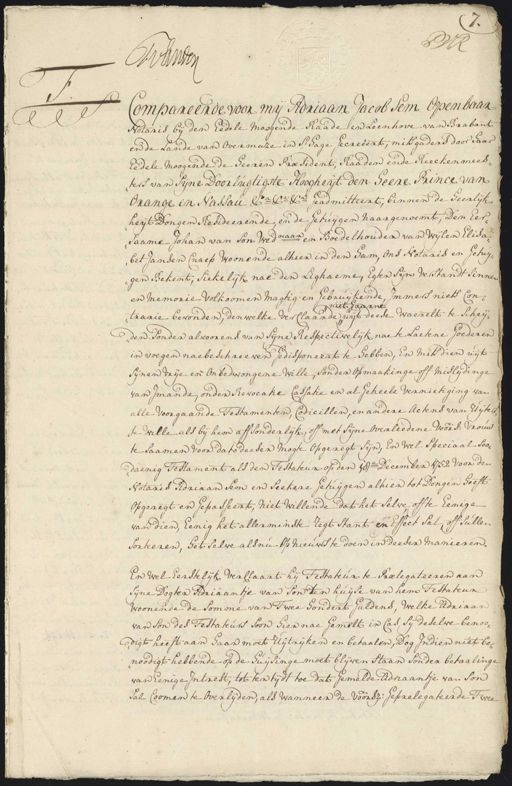 7.
T.
Compareerde voor mij Adriaan Jacob Sem Openbaar
Notaris bij den Edele Moogende Raade en Leenhove van Brabant
en de Lande van Overmaze in s'Hage
Edele Moogende de Heeren President, Raaden en de Reekenmees
ters van Syne Doorlugtigste Hoogheijt den Heere Prince van
Orange in Nassau &ca &ca &ca geadmitteert, binnen de Heerlijk
heijt Dongen Resideerende, en de getuijgen naargenoemt, Den Eer
saame Johan van Son Wednaar en Boedelhouder van wijlen Elisa
bet Jansen Knaep woonende alhier in den Dam, ons Notaris en getuij
gen Bekent, Siekelijk na den Lighaeme, Egter Syne verstandt Sinnen
en Memorie volkoomen Magtig en gebruijkende, Immers niets Con
trarie bevonden, denwelke verclaarde niet gaarne uijt deese Waerelt te Scheij
den Sonder alvoorens van Syne Respectivelijk na te Laetene goederen
in voegen naebeschreeven Gedisponeert te hebben, En mits dien uijt
Synen vrije en onbedwongene Wille, Sonder Opmaakinge off misleijdinge
van ijmande, onder Revocatie Cassatie en al geheele vernietiging van
alle voorgaande Testamenten, Codicillen, en andere Actens van Uijters
te Wille als bij hem affsonderlijk, off met Syne overleedene Huijs Vrouw
te Saamen voor dato deeser Mogte Opgeregt Syn, En wel Speciaal Soo
daenig Testament als den Testateur op den 18den December 1752 voor den
Notaris Adriaan Sem en Seekere getuijgen alhier tot Dongen heeft
Opgeregt en gepasseert, Niet willende dat het Selve, ofte Eenige
van dien, Eenig het allerminste Regt Stant en Effect Sal, off Sulle
Sorteeren, het Selve als nu op Nieuws te doen in deeser manieren.
En wel Eerstelijk verclaart hij Testateur te Prelegateeren aan
Syne Dogter Adriaantje van Son ten huijse van hem Testateur
woonende de Somme van Twee Hondert guldens, welke Adriaan
van Son des Testateurs Soon hier nae gemelt in Cas Sy deselve benoo
digt heeft aan haar moet Uijtrijken en betaalen, Dog Indien niet be
noodigt hebbende op de Huijsinge moet blijven Staan Sonder betaalinge
van Eenige Intrest, tot ter tijdt toe dat gemelde Adriaantje van Son
Sal Coomen te Overlijden, als wanneer de voorsz: geprelegateerde Twee